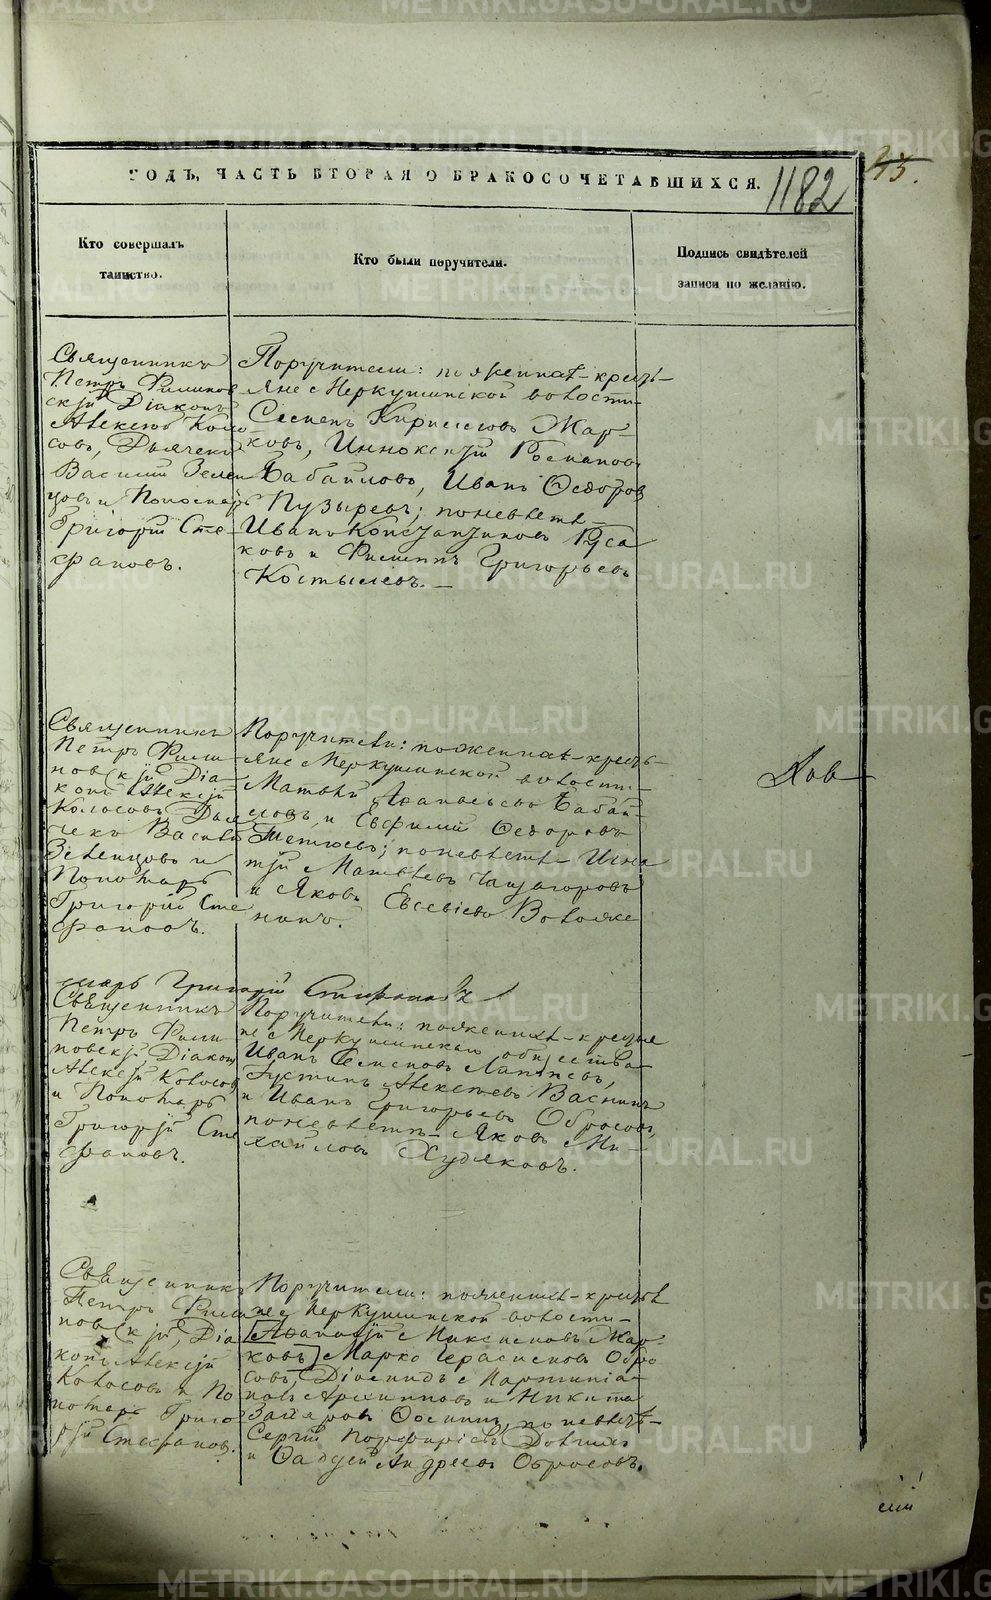 ГОДЪ, ЧАСТЬ ВТОРАЯ О БРАКОСОЧЕТАВШИХСЯ.
1182
Кто совершалъ
таинство.
Кто были поручители.
Подпись свидѣтелей
записи по желанію.
Священникъ
Петръ Филинов
скій Діаконъ
Алексѣй Коло
совъ, Дьячекъ
Василій Зелен
цовъ и Пономарь
Григорій Сте
фановъ.
Поручители: по женихѣ - кресть
яне Меркушинской волости
Семенъ Кирилловъ Мар
ковъ, Иннокентій Романовъ
Бабайловъ, Иванъ Ѳедоровъ
Пузыревъ; по невѣстѣ
Иванъ Константиновъ Руса
ковъ и Филиппъ Григорьевъ
Костылевъ.
Священникъ
Петръ Фили
новскій Діа
конъ Алексій
Колосовъ Дья
чекъ Василій
Зеленцовъ и
Пономарь
Григорій Сте
фановъ.
Поручители: по женихѣ - кресть
яне Меркушинской волости
Матвѣй Аѳанасьевъ Бабай
ловъ, и Евфимій Ѳедоровъ
Тетюевъ; по невѣстѣ Игна
тій Матвѣевъ
и Яковъ Евсевіевъ Воложе
нинъ.
номарь Григорій Стефановъ
Священникъ
Петръ Фили
новскій, Діаконъ
Алексѣй Колосовъ
и Пономарь
Григорій Сте
фановъ.
Поручители: по женихѣ - крестья
не Меркушинскаго общества
Иванъ Семеновъ Лаптевъ,
Густинъ Алексѣевъ Васнинъ
и Иванъ Григорьевъ Обросовъ,
по невѣстѣ - Яковъ Ми
хайловъ Худяковъ.
Священникъ
Петръ Фили
новскій, Діа
конъ Алексій
Колосовъ и По
номарь Григо
рій Стефановъ.
Поручители: по женихѣ - крестья
не Меркушинской волости
Аѳанасій Максимовъ Мар
ковъ Марко Герасимовъ Обро
совъ, Діомидъ Парѳиніа
новъ Архиповъ и Никита
Ѳоминъ, по невѣстѣ
Сергій Порфирьевъ
и Ѳадѣй Андреевъ Обросовъ.
METRIKI.GASO-URAL.RU